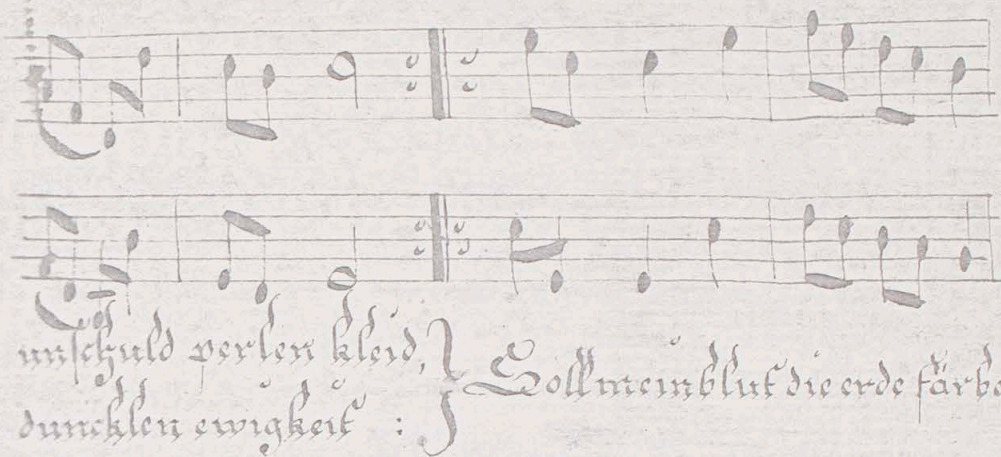 unschuld perlen kleid,
duncklen ewigkeit :
Soll mein blut die erde färbe